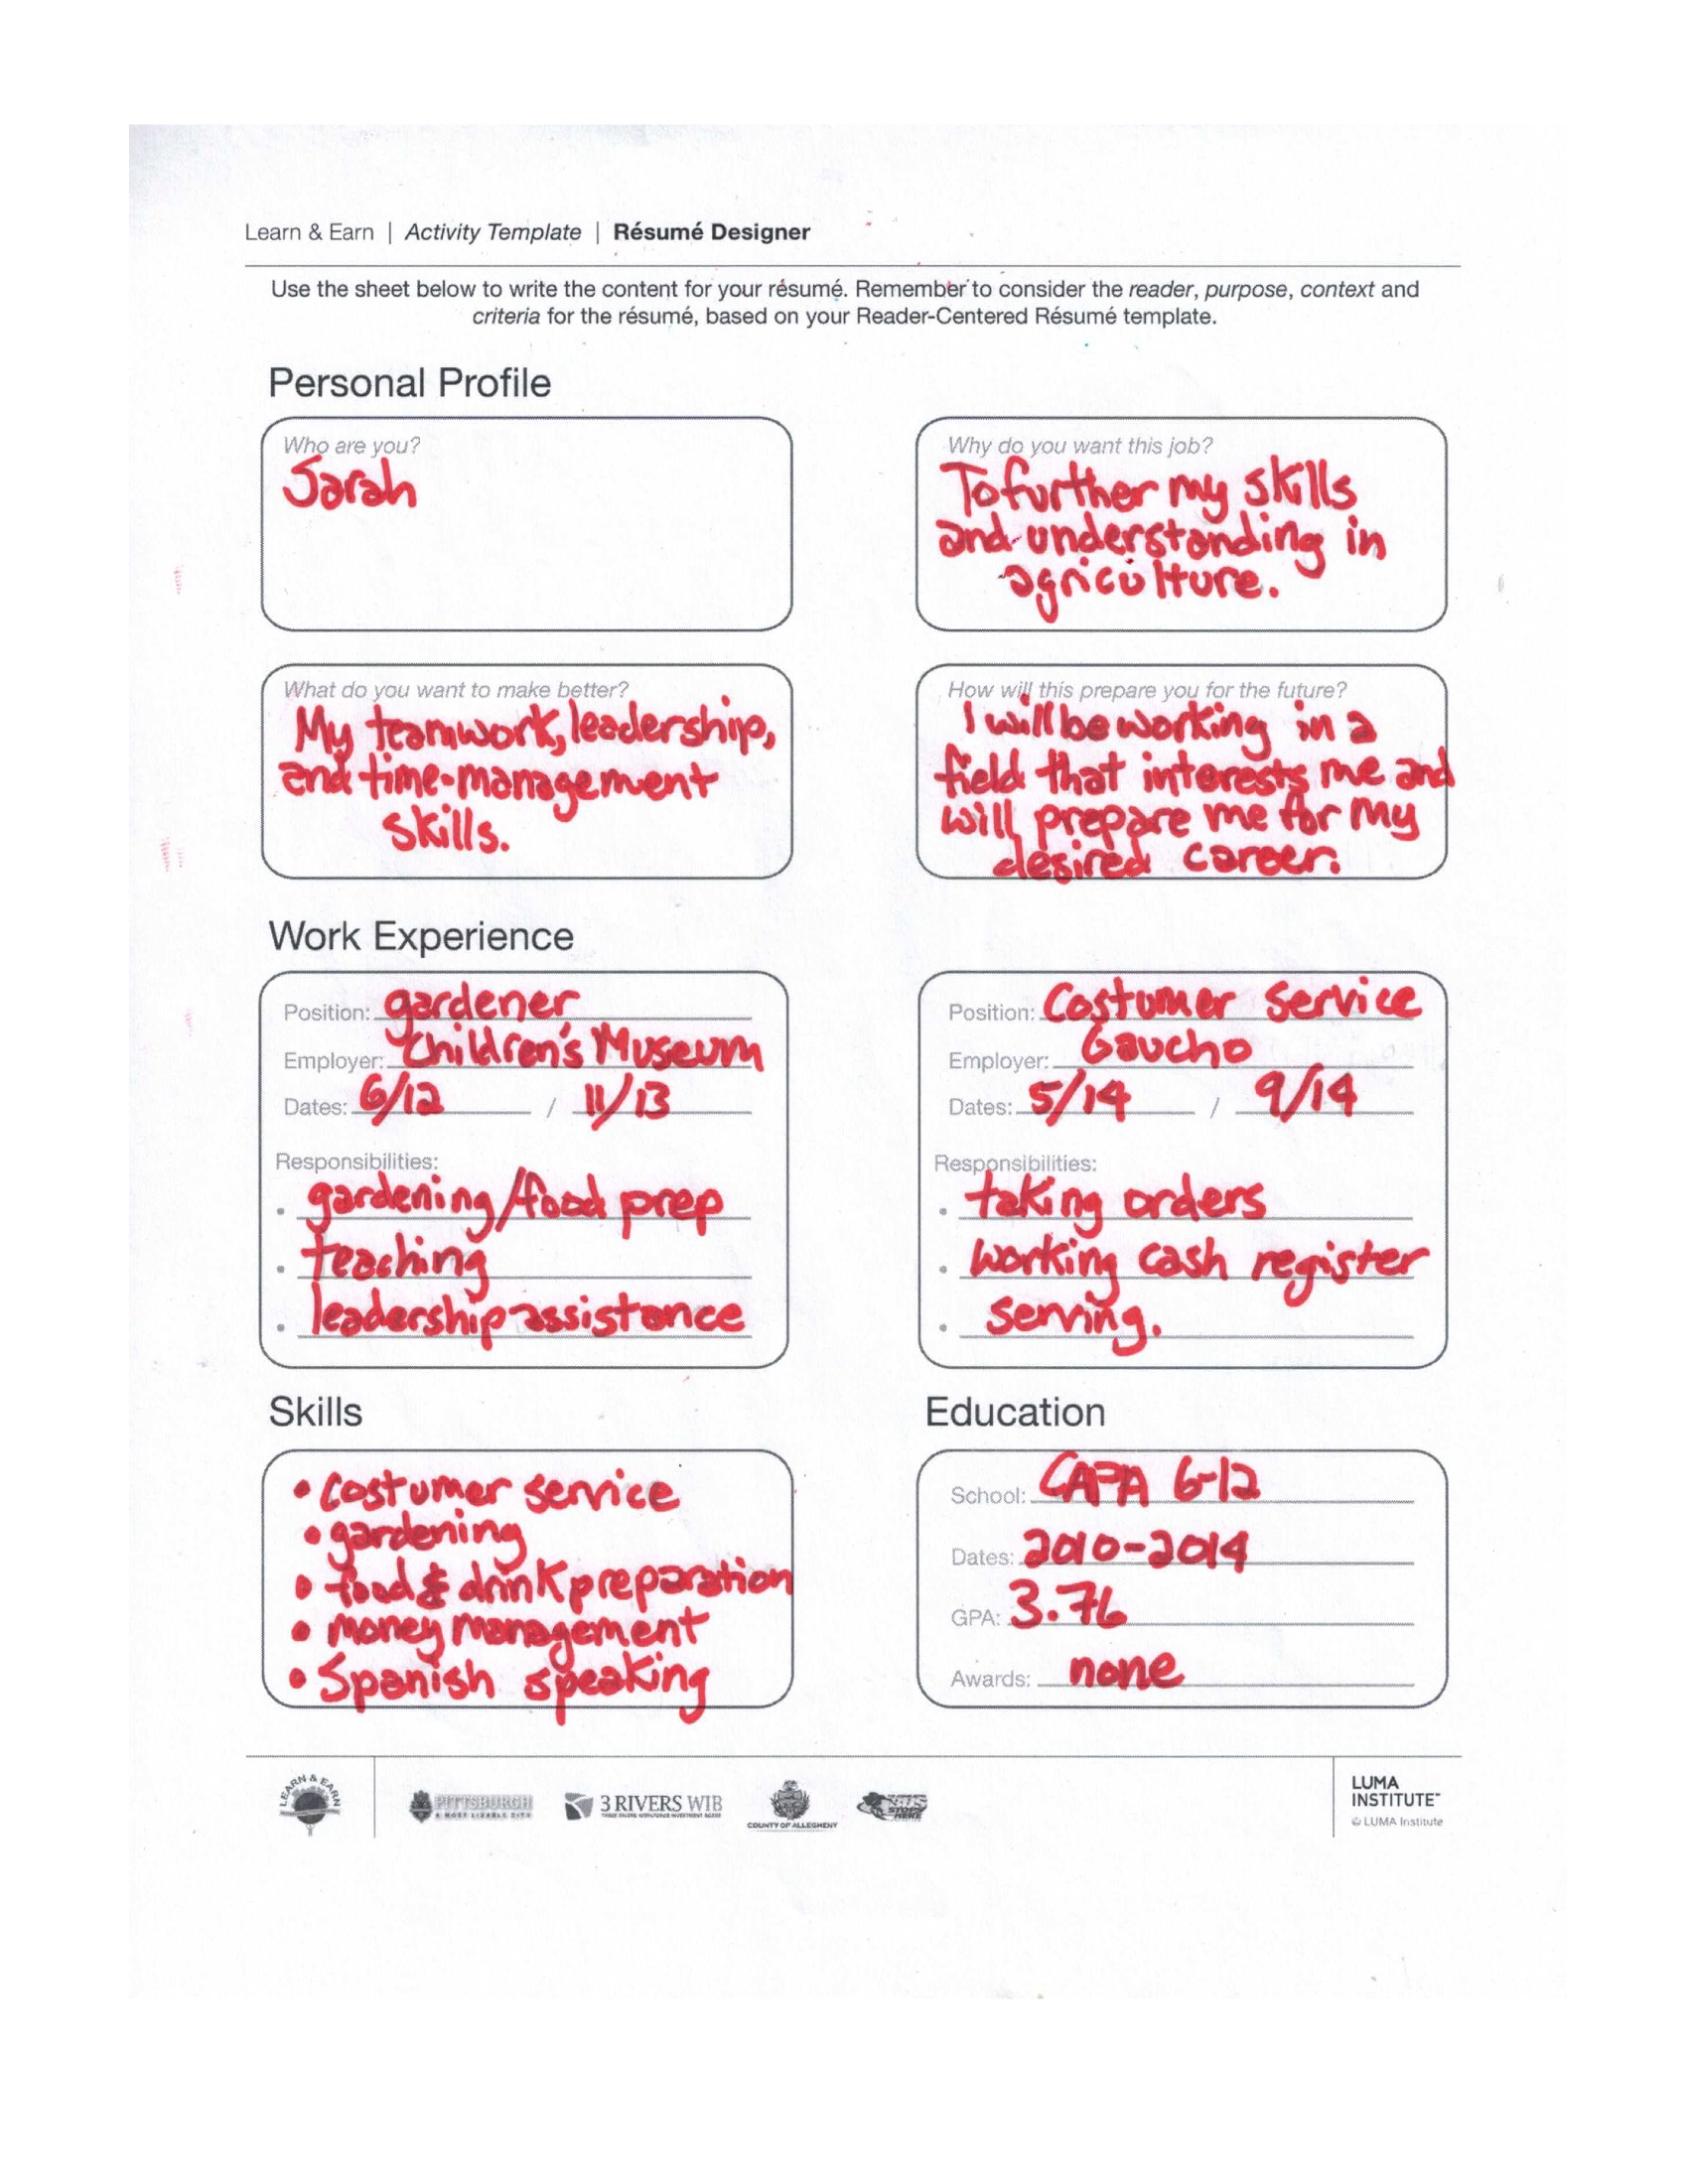 Learn & Earn | Activity Template | Résumé Designer
Use the sheet below to write the content for your résumé. Remember to consider the reader, purpose, context and
criteria for the résumé, based on your Reader-Centered Résumé template.
Personal Profile
Who are you?
Sarah
Why do you want this job?
To further my skills
and understanding in
agriculture.
What do you want to make better?
My teamwork, leadership,
and time-management
skills.
How will this prepare you for the future?
I will be working in a
field that interests me and
will prepare me for my
desired career.
Work Experience
Position: gardener
Employer: Children's Museum
Dates: 6/12 / 11/13
Responsibilities:
• gardening/food prep
• teaching
• leadership assistance
Position: Costumer service
Employer: Gaucho
Dates: 5/14 / 9/14
Responsibilities:
• taking orders
• working cash register
• serving.
Skills
• costumer service
• gardening
• food & drink preparation
• money management
• Spanish speaking
Education
School: CAPA 6-12
Dates: 2010-2014
GPA: 3.76
Awards: none
LEARN & EARN
PITTSBURGH
3 RIVERS WIB
COUNTY OF ALLEGHENY
LUMA
INSTITUTE™
© LUMA Institute